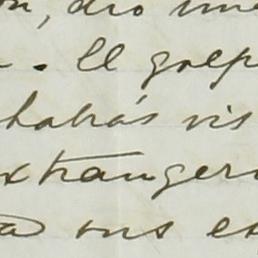 , dio una
. El golpe
habrás vis
extrangero
a sus es